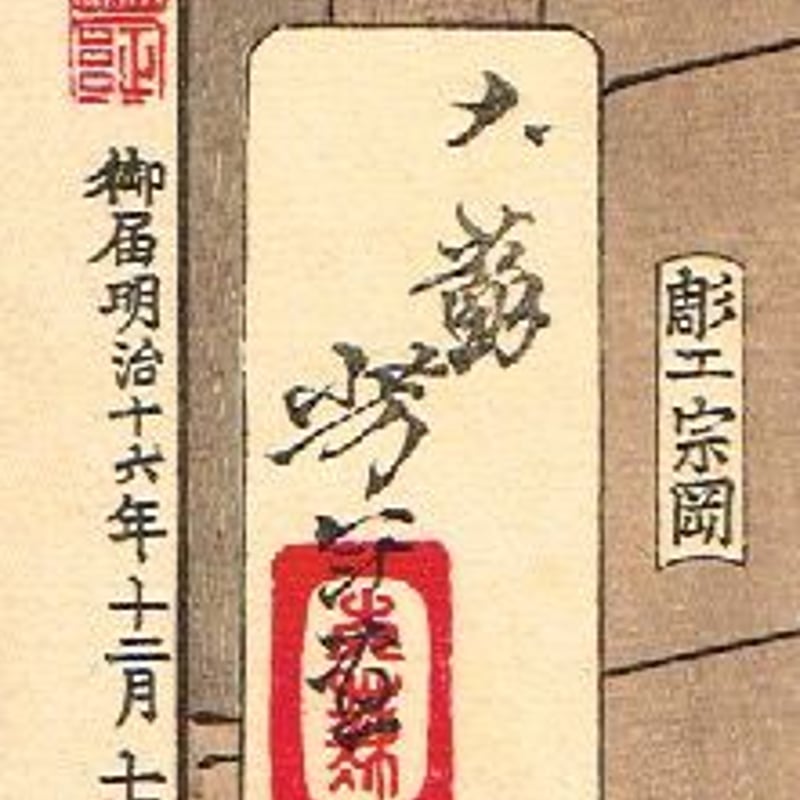 彫工宗岡
大蘇
芳年
御届明治十六年十二月七